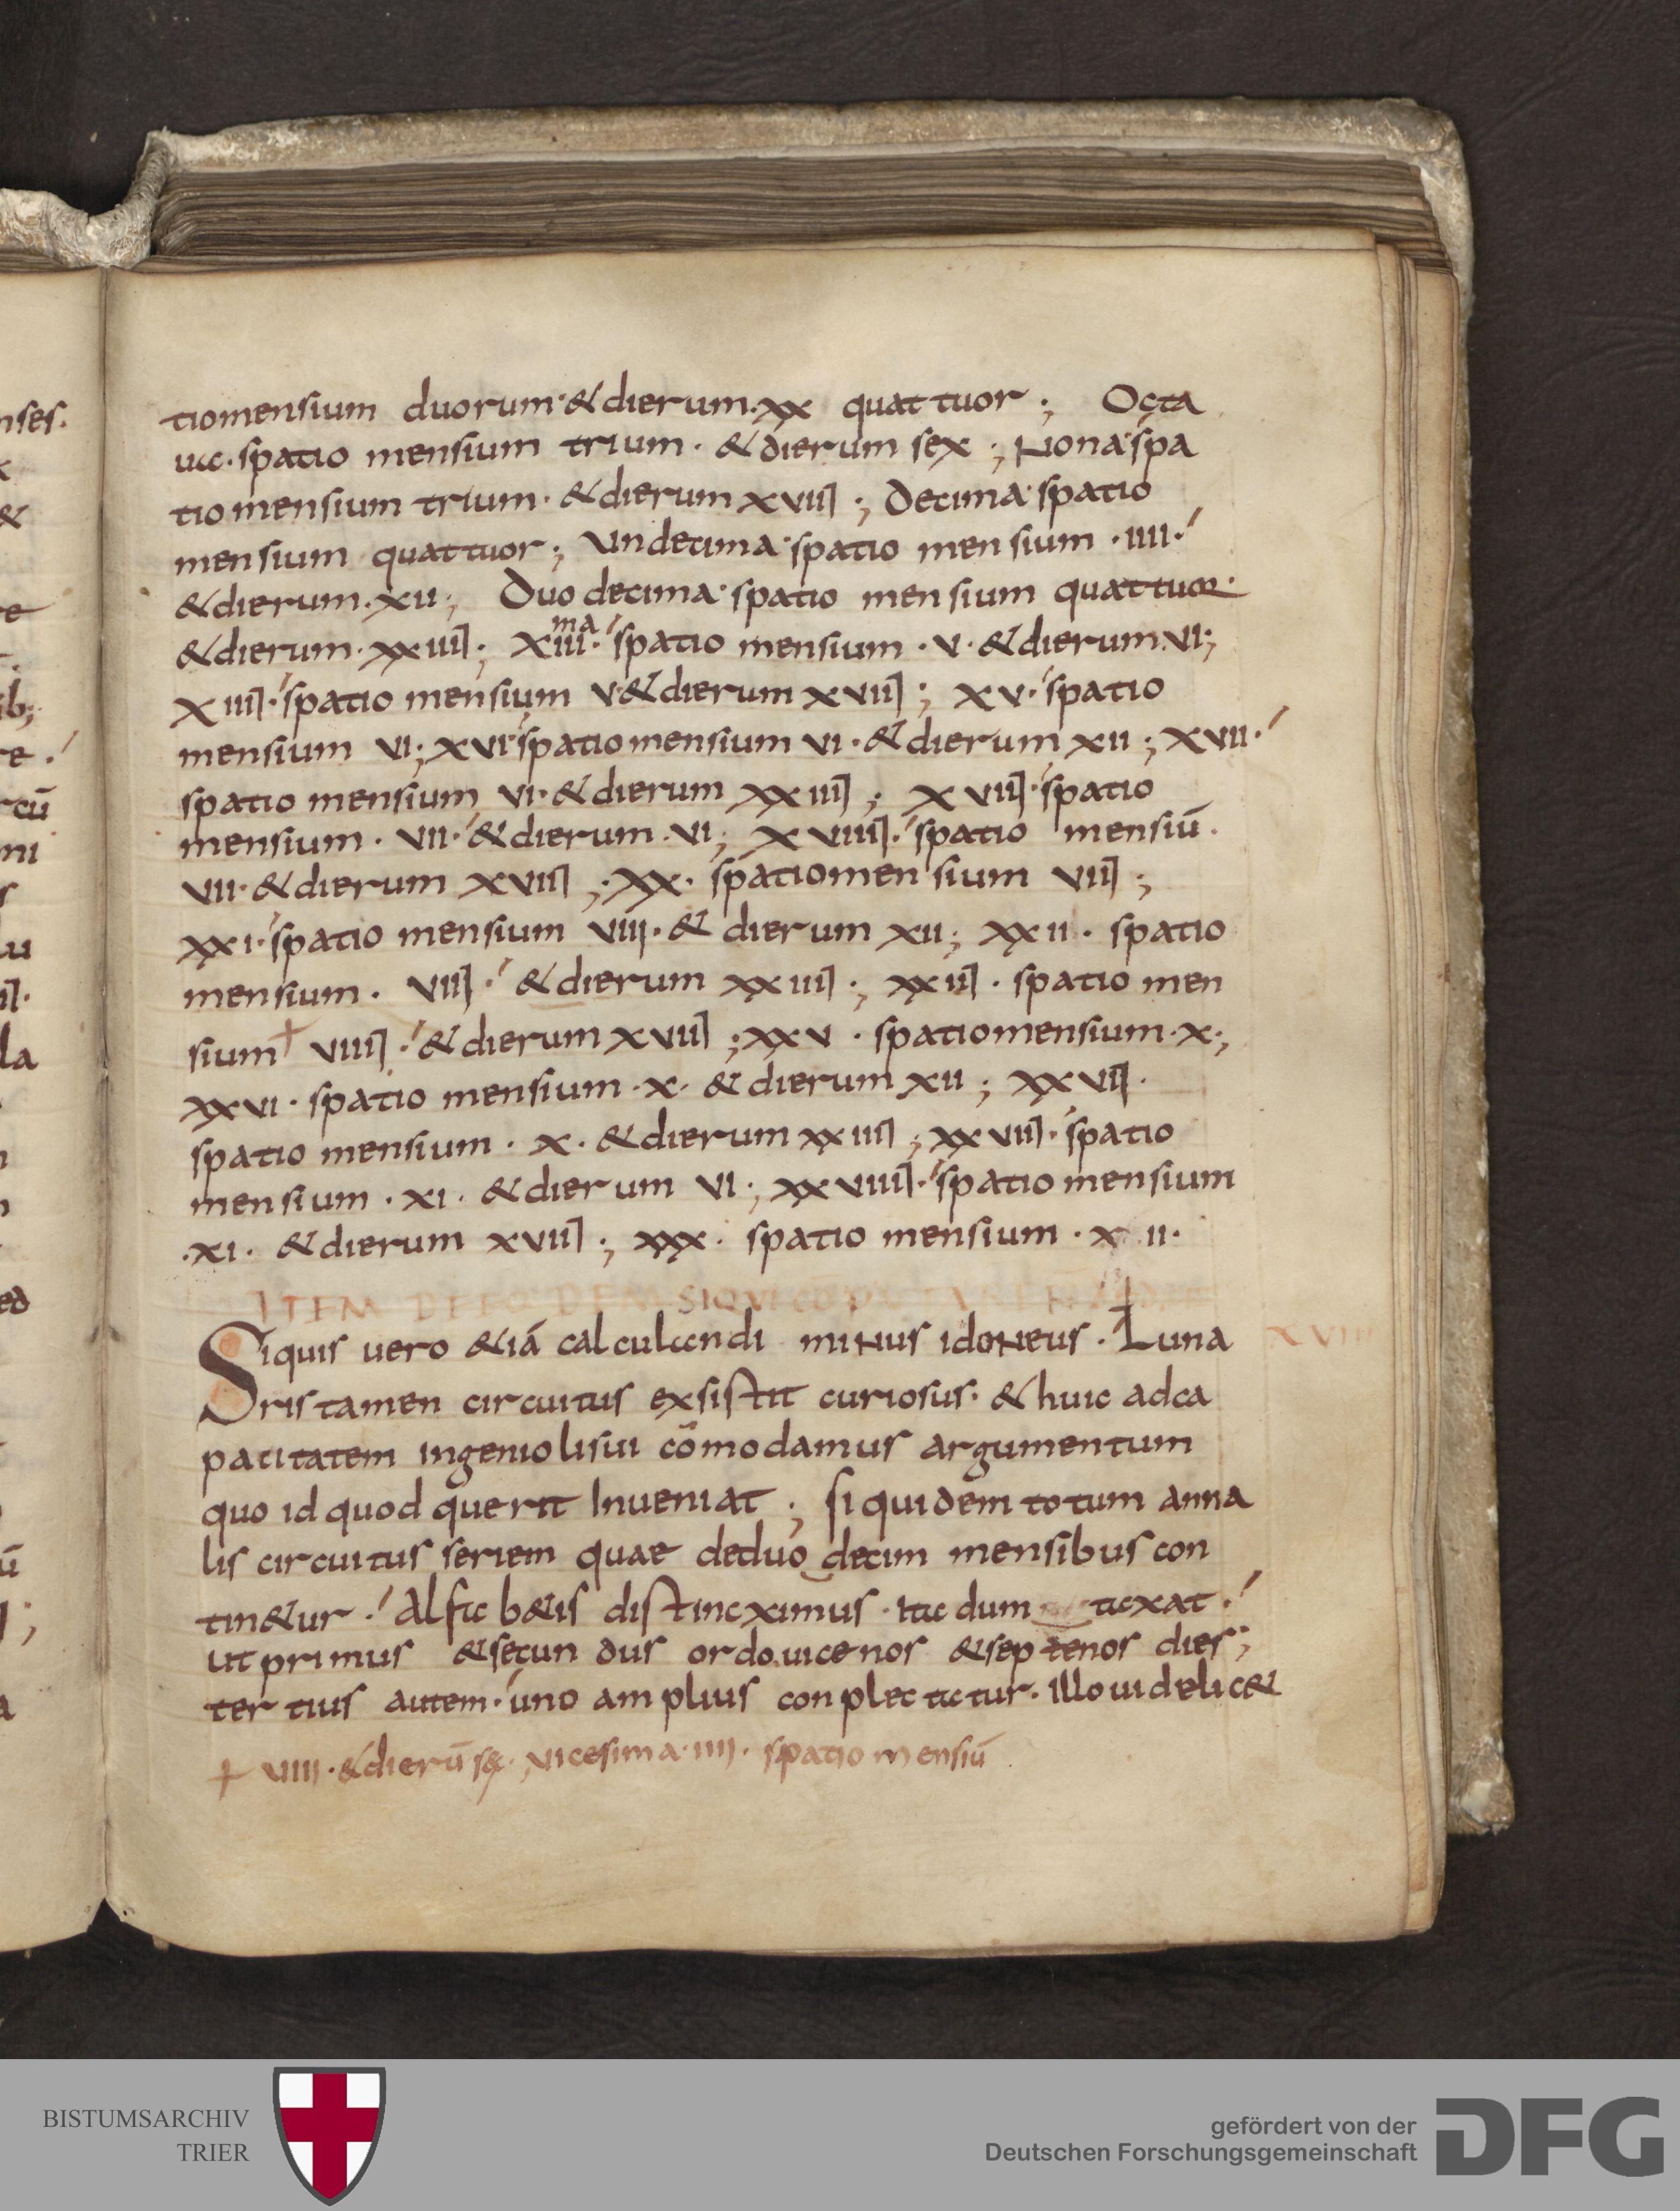 tiomensium duorum·&dierum·xx quattuor; Octa
ua·spatio mensium trium·&dierum sex; Nona·spa
tio mensium trium·&dierum xviii; Decima·spatio
mensium quattuor; Undecima·spatio mensium·iiii·
&dierum·xii; Duodecima·spatio mensium quattuor·
&dierum·xxiiii; xiii·ma spatio mensium·v·&dierum·vi;
xiiii·spatio mensium v·&dierum xviii; xv·spatio
mensium vi; xvi·spatiomensium vi·&dierum xii; xvii·
spatio mensium vi·&dierum xxiiii; xviii·spatio
mensium·vii·&dierum·vi; xviiii·spatio mensiū·
vii·&dierum xviii;·xx·spatiomensium viii;
xxi·spatio mensium viii·& dierum xii; xxii·spatio
mensium·viii·&dierum xxiiii; xxiii·spatio men
sium+ viiii·&dierum xviii; xxv·spatiomensium·x·;
xxvi·spatio mensium·x·&dierum xii; xxvii·
spatio mensium·x·&dierum xxiiii; xxviii·spatio
mensium·xi·&dierum vi; xxviiii·spatio mensium
·xi·&dierum xviii; xxx·spatio mensium·x ii·
ITEM DE EODEM SIQUI
Siquis uero &iā calculandi minus idoneus·Luna
ris tamen circuitus exsistit curiosus·&huic adca
pacitatem ingeniolisui cōmodamus argumentum
quo id quod querit Inueniat; siquidem totum anna
lis circuitus seriem quae deduodecim mensibus con
tin&ur·Alfab&is distincximus·Ita dum taxat·
ut primus &secundus ordo·uicenos &septenos dies;
tertius autem·uno amplius conplectatur·Illo uidelic&
+ viiii·&dierū sex; vicesima·iiii·spatio mensiū
nses·
x
&
re
ib;
re·
rcū
mi
r
lu
la
ed
ū
a
BISTUMSARCHIV
TRIER
gefördert von der
Deutschen Forschungsgemeinschaft
DFG